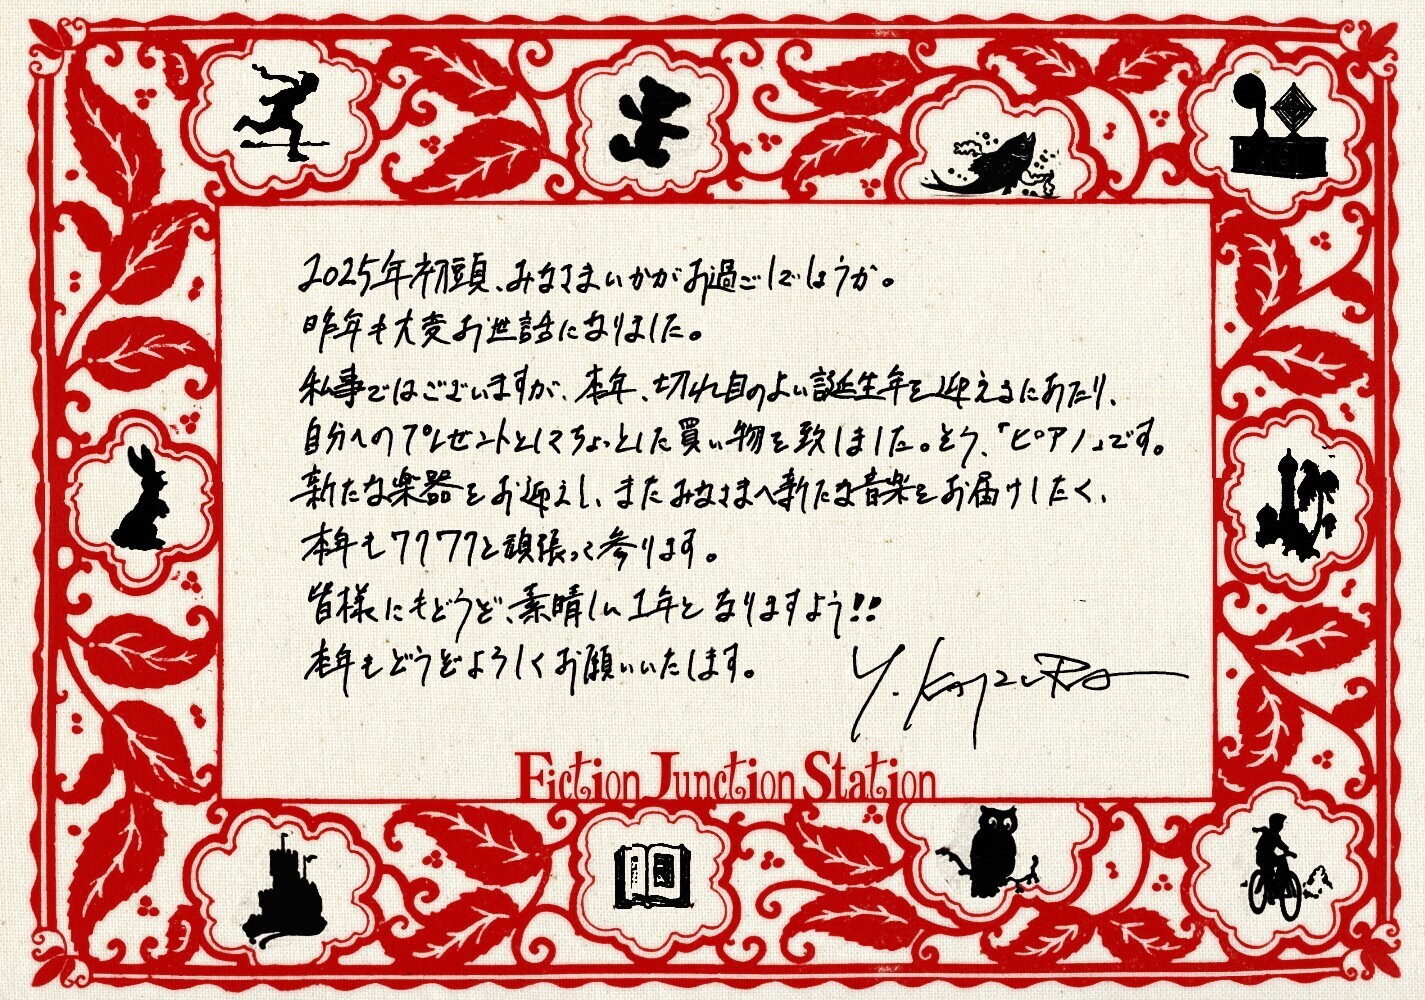 2025年初頭、みなさまいかがお過ごしでしょうか。
昨年も大変お世話になりました。
私事ではございますが、本年、切れ目のよい誕生年を迎えるにあたり、
自分へのプレゼントとしてちょっとした買い物を致しました。そう、「ピアノ」です。
新たな楽器をお迎えし、またみなさまへ新たな音楽をお届けしたく、
本年もワクワクと頑張って参ります。
皆様にもどうぞ、素晴しい1年となりますよう!!
本年もどうぞよろしくお願いいたします。
Y. Kajiura
Fiction Junction Station